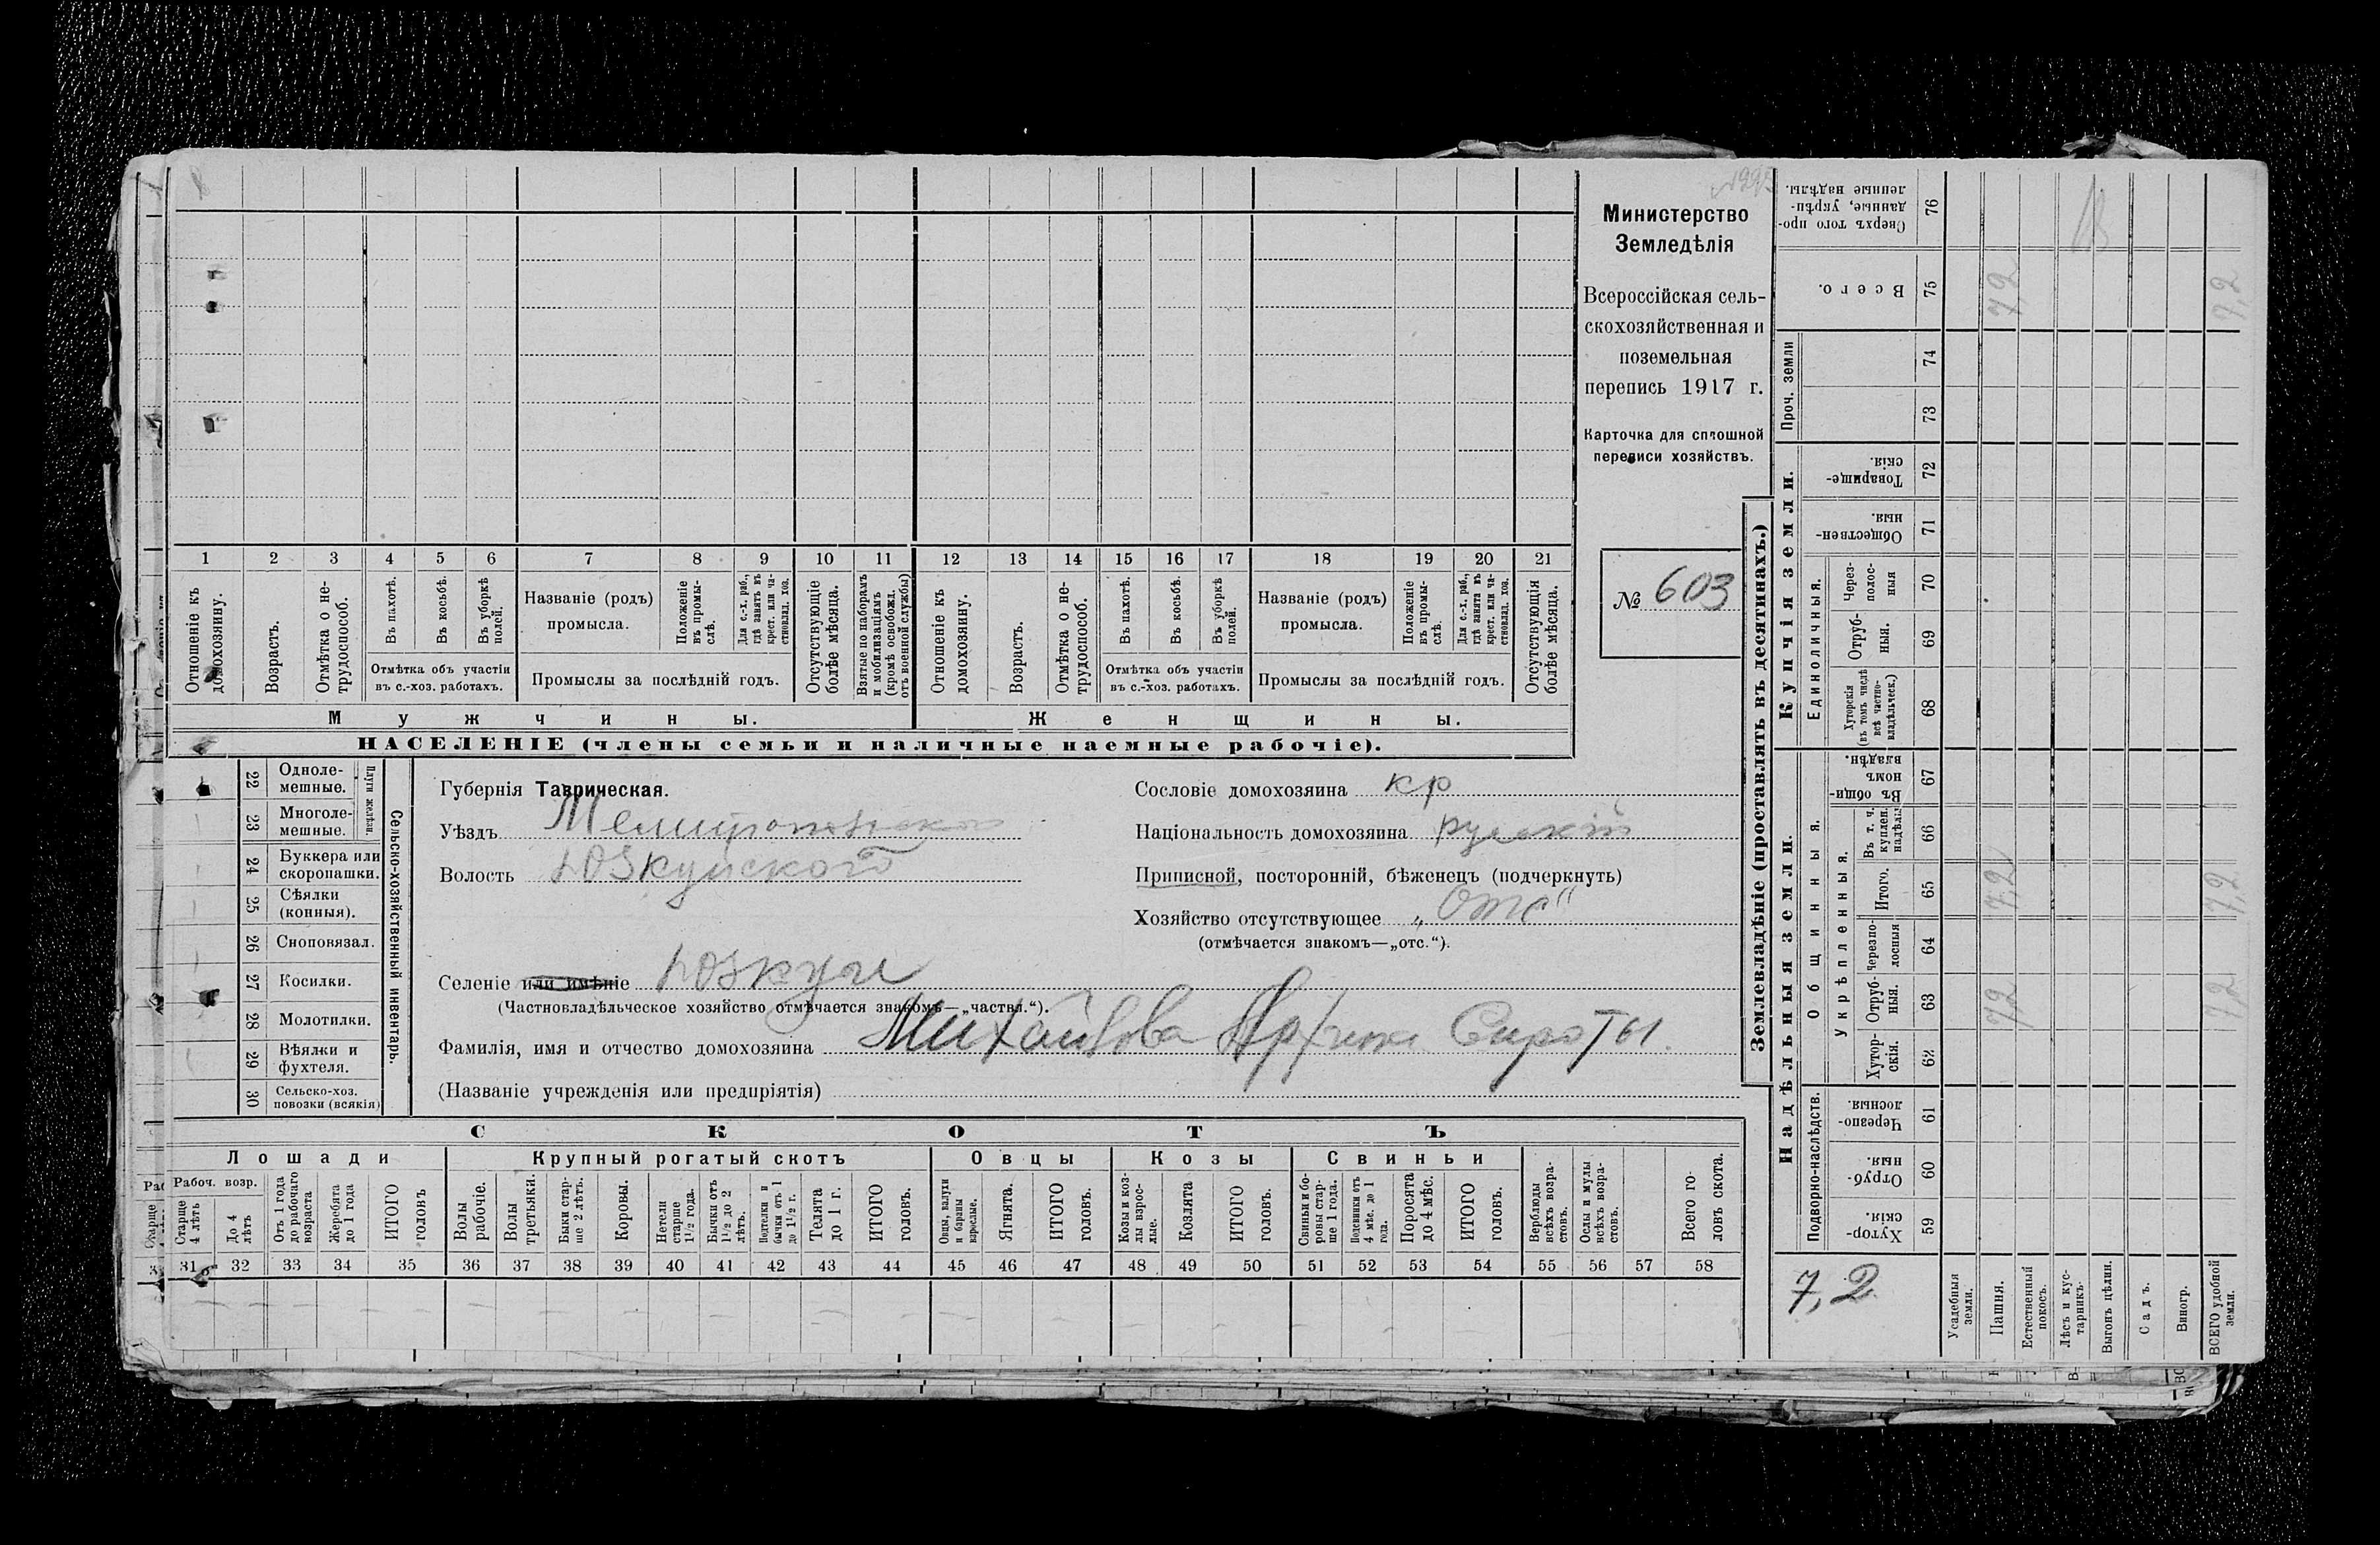 Министерство
Земледѣлія
Всероссійская сель-
скохозяйственная и
поземельная
перепись 1917 г.
Карточка для сплошной
переписи хозяйствъ.
№ 603
1 2 3 4 5 6 7 8 9 10 11 12 13 14 15 16 17 18 19 20 21
Отношеніе къ домохозяину.
Возрастъ.
Отмѣтка о не-трудоспособ.
Въ пахотѣ.
Въ косьбѣ.
Въ уборкѣ полей.
Отмѣтка объ участіи
въ с.-хоз. работахъ.
Названіе (родъ)
промысла.
Положеніе въ промы-слѣ.
Для с.-х. раб., гдѣ занятъ въ крест. или ча-стновлад. хоз.
Промыслы за послѣдній годъ.
Отсутствующіе болѣе мѣсяца.
Взятые по наборамъ и мобилизаціямъ (кромѣ освобожд. отъ военной службы)
Отношеніе къ домохозяину.
Возрастъ.
Отмѣтка о не-трудоспособ.
Въ пахотѣ.
Въ косьбѣ.
Въ уборкѣ полей.
Отмѣтка объ участіи
въ с.-хоз. работахъ.
Названіе (родъ)
промысла.
Положеніе въ промы-слѣ.
Для с.-х. раб., гдѣ занята въ крест. или ча-стновлад. хоз.
Промыслы за послѣдній годъ.
Отсутствующія болѣе мѣсяца.
Мужчины.
Женщины.
НАСЕЛЕНІЕ (члены семьи и наличные наемные рабочіе).
22 Одноле-мешные.
23 Многоле-мешные.
Плуги желѣзн.
24 Буккера или скоропашки.
25 Сѣялки (конныя).
26 Сноповязал.
27 Косилки.
28 Молотилки.
29 Вѣялки и фухтеля.
30 Сельско-хоз. повозки (всякія)
Сельско-хозяйственный инвентарь.
Губернія Таврическая.
Уѣздъ Мелитопольскаго
Волость Юзкуйского
Селеніе или имѣніе Юзкуи
(Частновладѣльческое хозяйство отмѣчается знакомъ—„частвл.“).
Фамилія, имя и отчество домохозяина Михайлова Архипа Сироты.
(Названіе учрежденія или предпріятія)
Сословіе домохозяина кр
Національность домохозяина русскій
Приписной, посторонній, бѣженецъ (подчеркнуть)
Хозяйство отсутствующее „Отс“
(отмѣчается знакомъ—„отс.“).
СКОТЪ
Лошади
Крупный рогатый скотъ
Овцы
Козы
Свиньи
Рабоч. возр.
Старще 4 лѣтъ
До 4 лѣтъ
Отъ 1 года до рабочаго возраста
Жеребята до 1 года
ИТОГО головъ
Волы рабочіе.
Волы третьяки.
Быки стар-ше 2 лѣтъ.
Коровы.
Нетели старше 1½ года.
Бычки отъ 1½ до 2 лѣтъ.
Нетелки и бычки отъ 1 до 1½ г.
Телята до 1 г.
ИТОГО головъ.
Овцы, валухи и бараны взрослые.
Ягнята.
ИТОГО головъ.
Козы и коз-лы взрос-лые.
Козлята
ИТОГО головъ.
Свиньи и бо-ровы стар-ше 1 года.
Подсвинки отъ 4 мѣс. до 1 года.
Поросята до 4 мѣс.
ИТОГО головъ.
Верблюды всѣхъ возра-стовъ.
Ослы и мулы всѣхъ возра-стовъ.
Всего го-ловъ скота.
31 32 33 34 35 36 37 38 39 40 41 42 43 44 45 46 47 48 49 50 51 52 53 54 55 56 57 58
Землевладѣніе (проставлять въ десятинахъ.)
Купчія земли.
Надѣльныя земли.
Сверхъ того про-данные, укрѣп-ленные надѣлы. 76
Всего. 75 7,2 7,2
Проч. земли 74 73
Товарище-скія. 72
Обществен-ныя. 71
Единоличныя.
Через-полос-ныя 70
Отруб-ныя. 69
Хуторскія (въ томъ числѣ всѣ частно-владѣльческ.) 68
Общинныя.
Въ общин-номъ владѣн. 67
Укрѣпленныя.
Въ т. ч. куплен. надѣлы 66
Итого. 65 7,2 7,2
Черезпо-лосныя 64
Отруб-ныя. 63 7,2 7,2
Хутор-скія. 62
Подворно-наслѣдств.
Черезпо-лосныя. 61
Отруб-ныя. 60
Хутор-скія. 59
7,2
Усадебныя земли.
Пашня.
Естественный покосъ.
Лѣсъ и кус-тарникъ.
Выгонъ цѣлин.
Садъ.
Виногр.
ВСЕГО удобной земли.